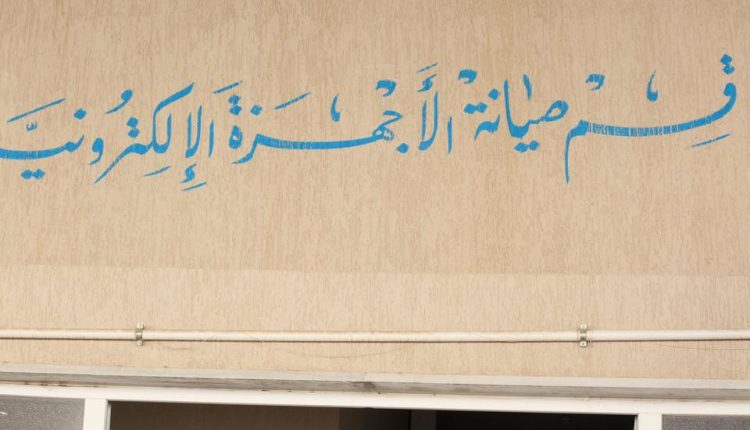 قسم صيانة الأجهزة الإلكترونيَّـ